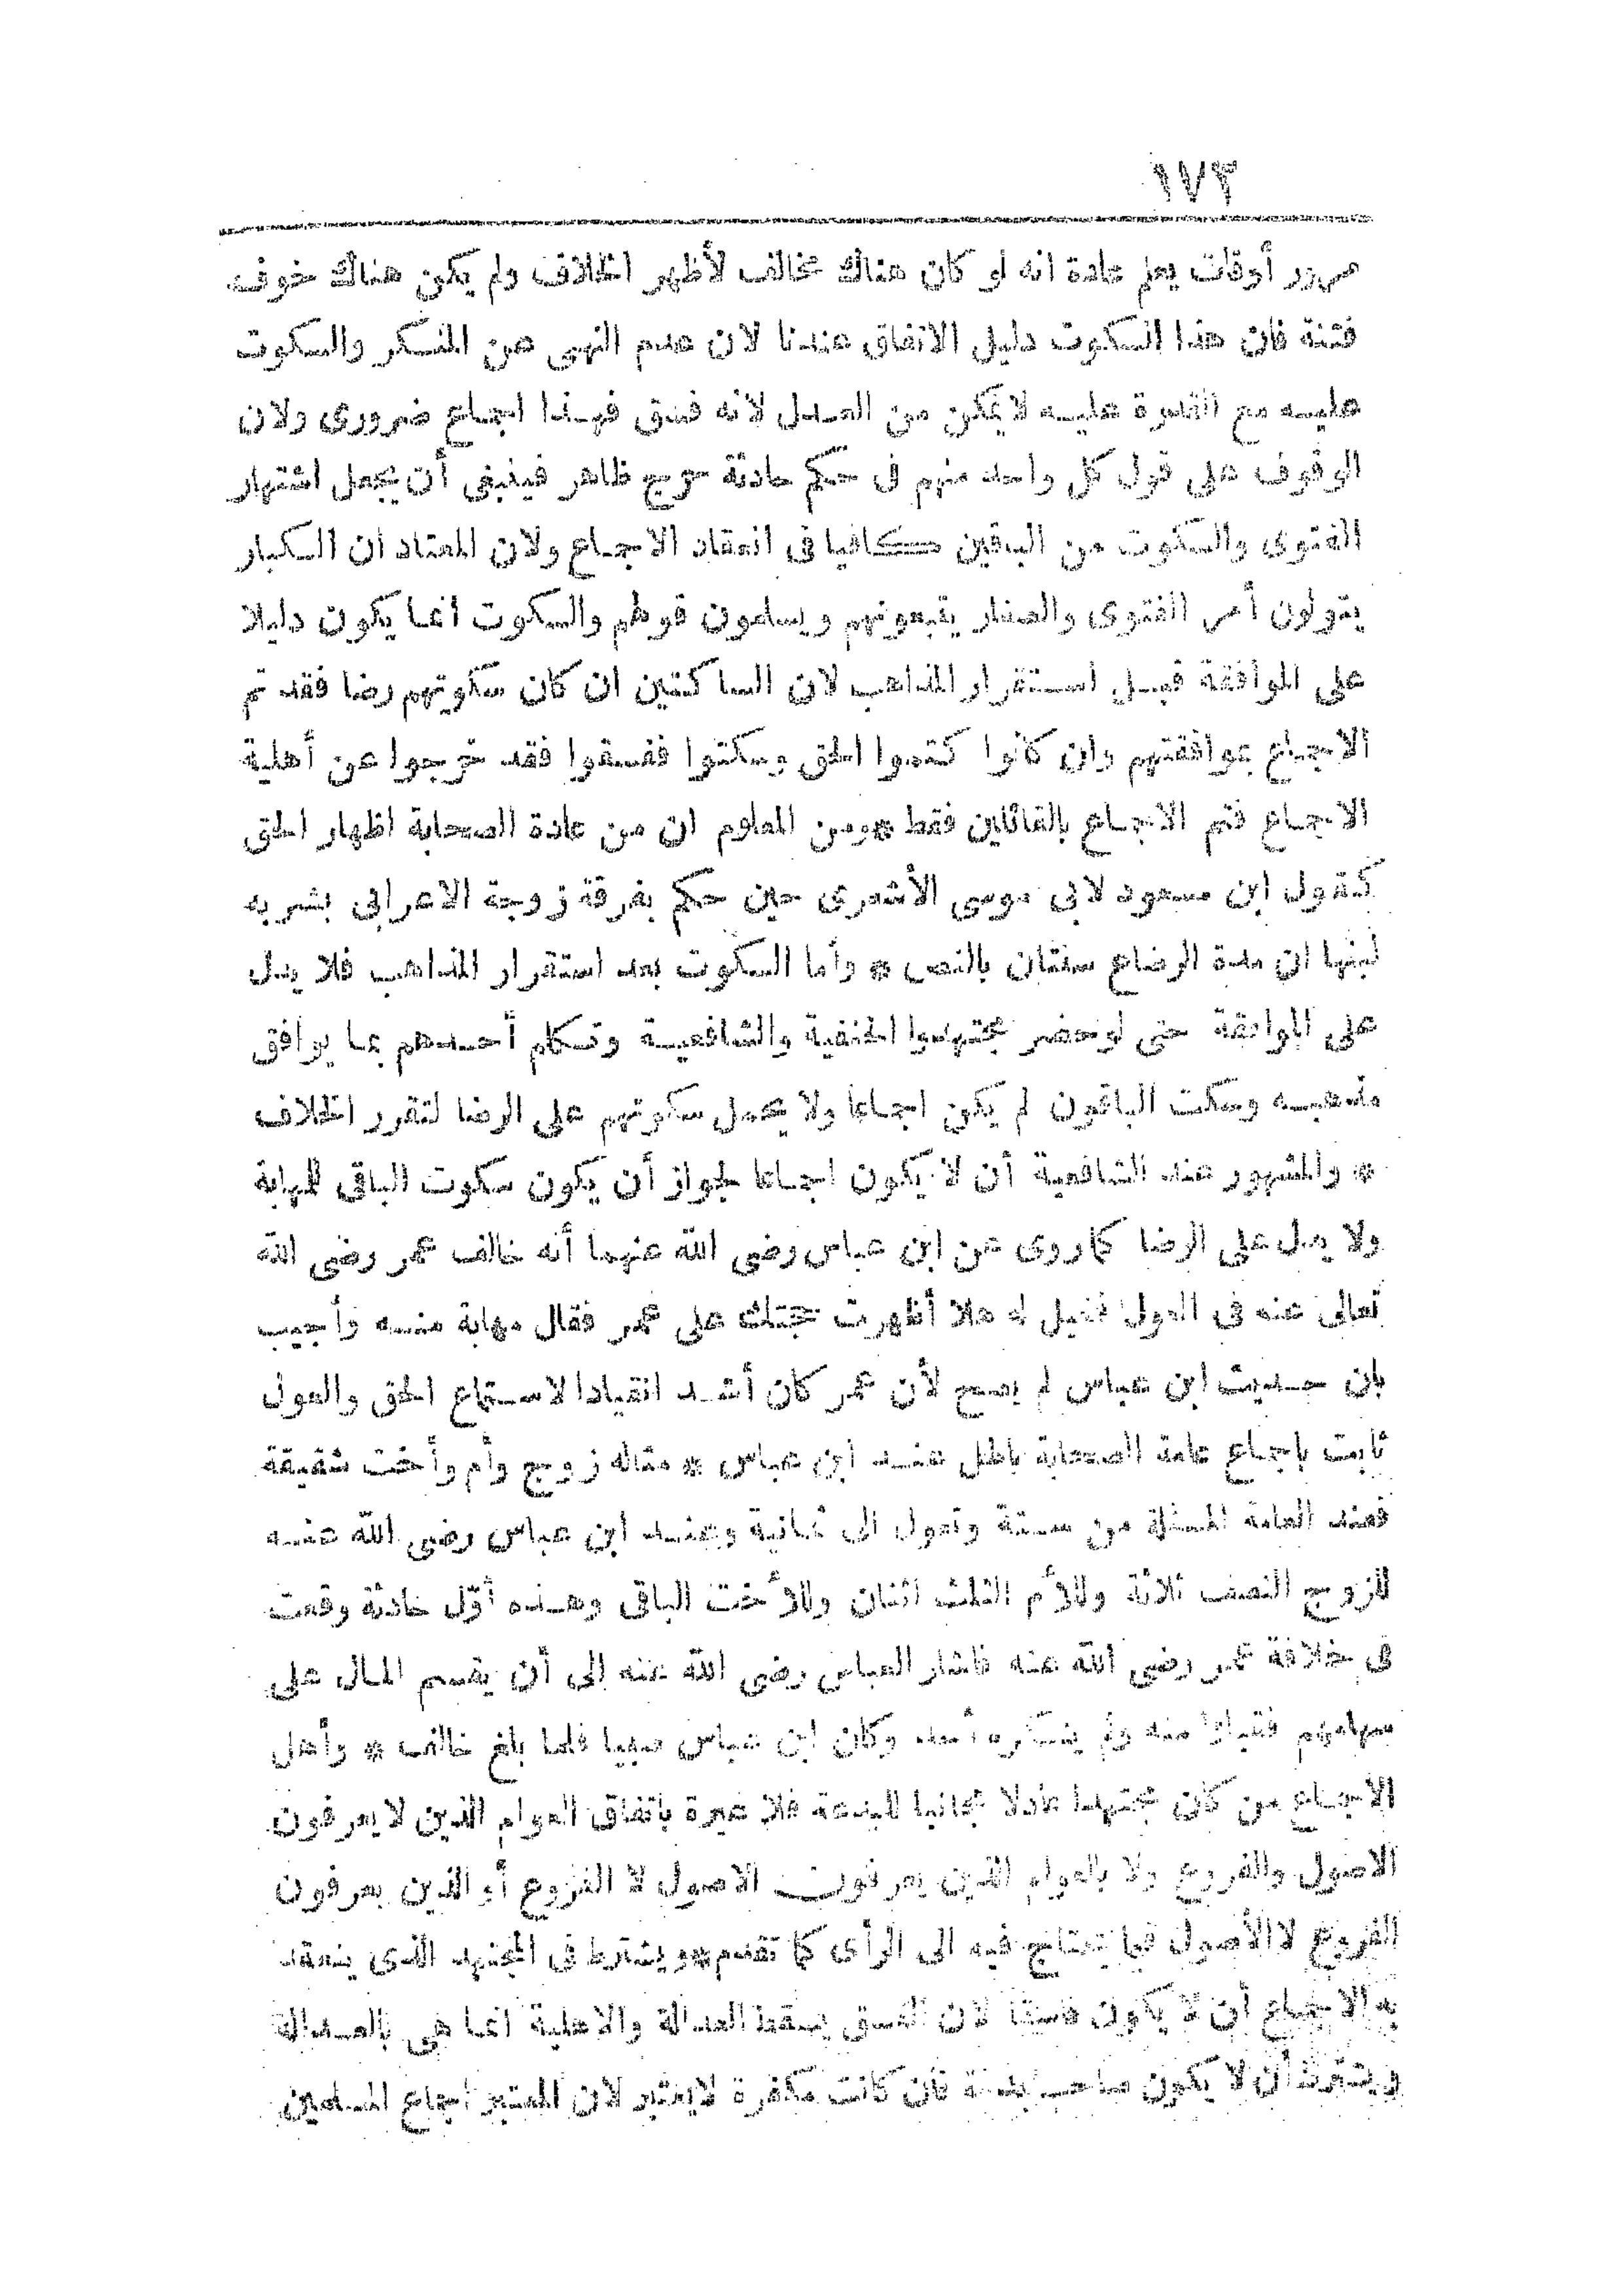 ١٧٣
مرور أوقات يعلم عادة انه لو كان هناك مخالف لأظهر الخلاف ولم يكن هناك خوف
فتنة فان هذا السكوت دليل الاتفاق عندنا لان عدم النهى عن المنكر والسكوت
عليه مع القدرة عليه لا يمكن من العدل لانه فسق فهذا اجماع ضرورى ولان
الوقوف على قول كل واحد منهم فى حكم حادثة حرج ظاهر فينبغى أن يجعل اشتهار
الفتوى والسكوت من الباقين كافيا فى انعقاد الاجماع ولان المعتاد ان الكبار
يتولون أمر الفتوى والصغار يتبعونهم ويسلمون قولهم والسكوت انما يكون دليلا
على الموافقة قبل استقرار المذاهب لان الساكتين ان كان سكوتهم رضا فقد تم
الاجماع بموافقتهم وان كانوا كتموا الحق وسكتوا ففسقوا فقد خرجوا عن أهلية
الاجماع فتم الاجماع بالقائلين فقط * ومن المعلوم ان من عادة الصحابة اظهار الحق
كقول ابن مسعود لابى موسى الأشعرى حين حكم بفرقة زوجة الاعرابى بشربه
لبنها ان مدة الرضاع سنتان بالنص * وأما السكوت بعد استقرار المذاهب فلا يدل
على الموافقة حتى لو حضر مجتهدوا الحنفية والشافعية وتكلم أحدهم بما يوافق
مذهبه وسكت الباقون لم يكن اجماعا ولا يحمل سكوتهم على الرضا لتقرر الخلاف
* والمشهور عند الشافعية أن لا يكون اجماعا لجواز أن يكون سكوت الباقى للمهابة
ولا يدل على الرضا كما روى عن ابن عباس رضى الله عنهما أنه خالف عمر رضى الله
تعالى عنه فى العول فقيل له هلا أظهرت حجتك على عمر فقال مهابة منه وأجيب
بان حديث ابن عباس لم يصح لأن عمر كان أشد انقيادا لاستماع الحق والعول
ثابت باجماع عامة الصحابة باطل عند ابن عباس * مثاله زوج وأم وأخت شقيقة
فعند العامة المسئلة من ستة وتعول الى ثمانية وعند ابن عباس رضى الله عنه
للزوج النصف ثلاثة وللأم الثلث اثنان وللأخت الباقى وهذه أوّل حادثة وقعت
فى خلافة عمر رضى الله عنه فاشار العباس رضى الله عنه إلى أن يقسم المال على
سهامهم فقبلوا منه ولم ينكره أحد وكان ابن عباس صبيا فلما بلغ خالف * وأهل
الاجماع من كان مجتهدا عادلا مجانبا للبدعة فلا عبرة باتفاق العوام الذين لا يعرفون
الاصول والفروع ولا بالعوام الذين يعرفون الاصول لا الفروع أو الذين يعرفون
الفروع لا الأصول فيما يحتاج فيه الى الرأى كما تقدم * ويشترط فى المجتهد الذى ينعقد
به الاجماع أن لا يكون فاسقا لان الفسق يسقط العدالة والاهلية انما هى بالعدالة
ويشترط أن لا يكون صاحب بدعة فان كانت مكفرة لا يعتبر لان المعتبر اجماع المسلمين